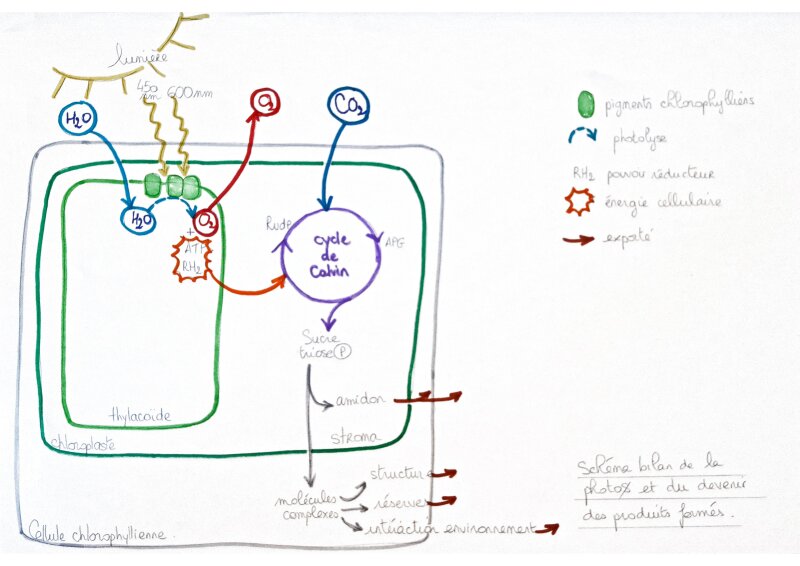 lumière
450
nm
600nm
H2O
O2
CO2
H2O
O2
+
ATP
RH2
RudP
APG
cycle
de
Calvin
Sucre
triose P
amidon
stroma
thylacoïde
chloroplaste
molécules
complexes
structure
réserve
intéraction environnement
Cellule chlorophyllienne.
pigments chlorophylliens
photolyse
RH2 pouvou réducteur
énergie cellulaire
exporté
Schéma bilan de la
photo% et du devenir
des produits formés.